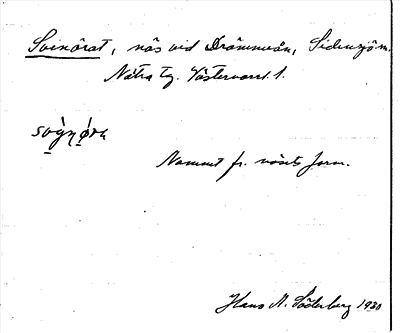 Svinörat, näs vid Drömmeån, Sidensjön.
Nätra tg. Västernorrl. l.
Namnet fr. näsets form.
Hans N. Söderberg 1930